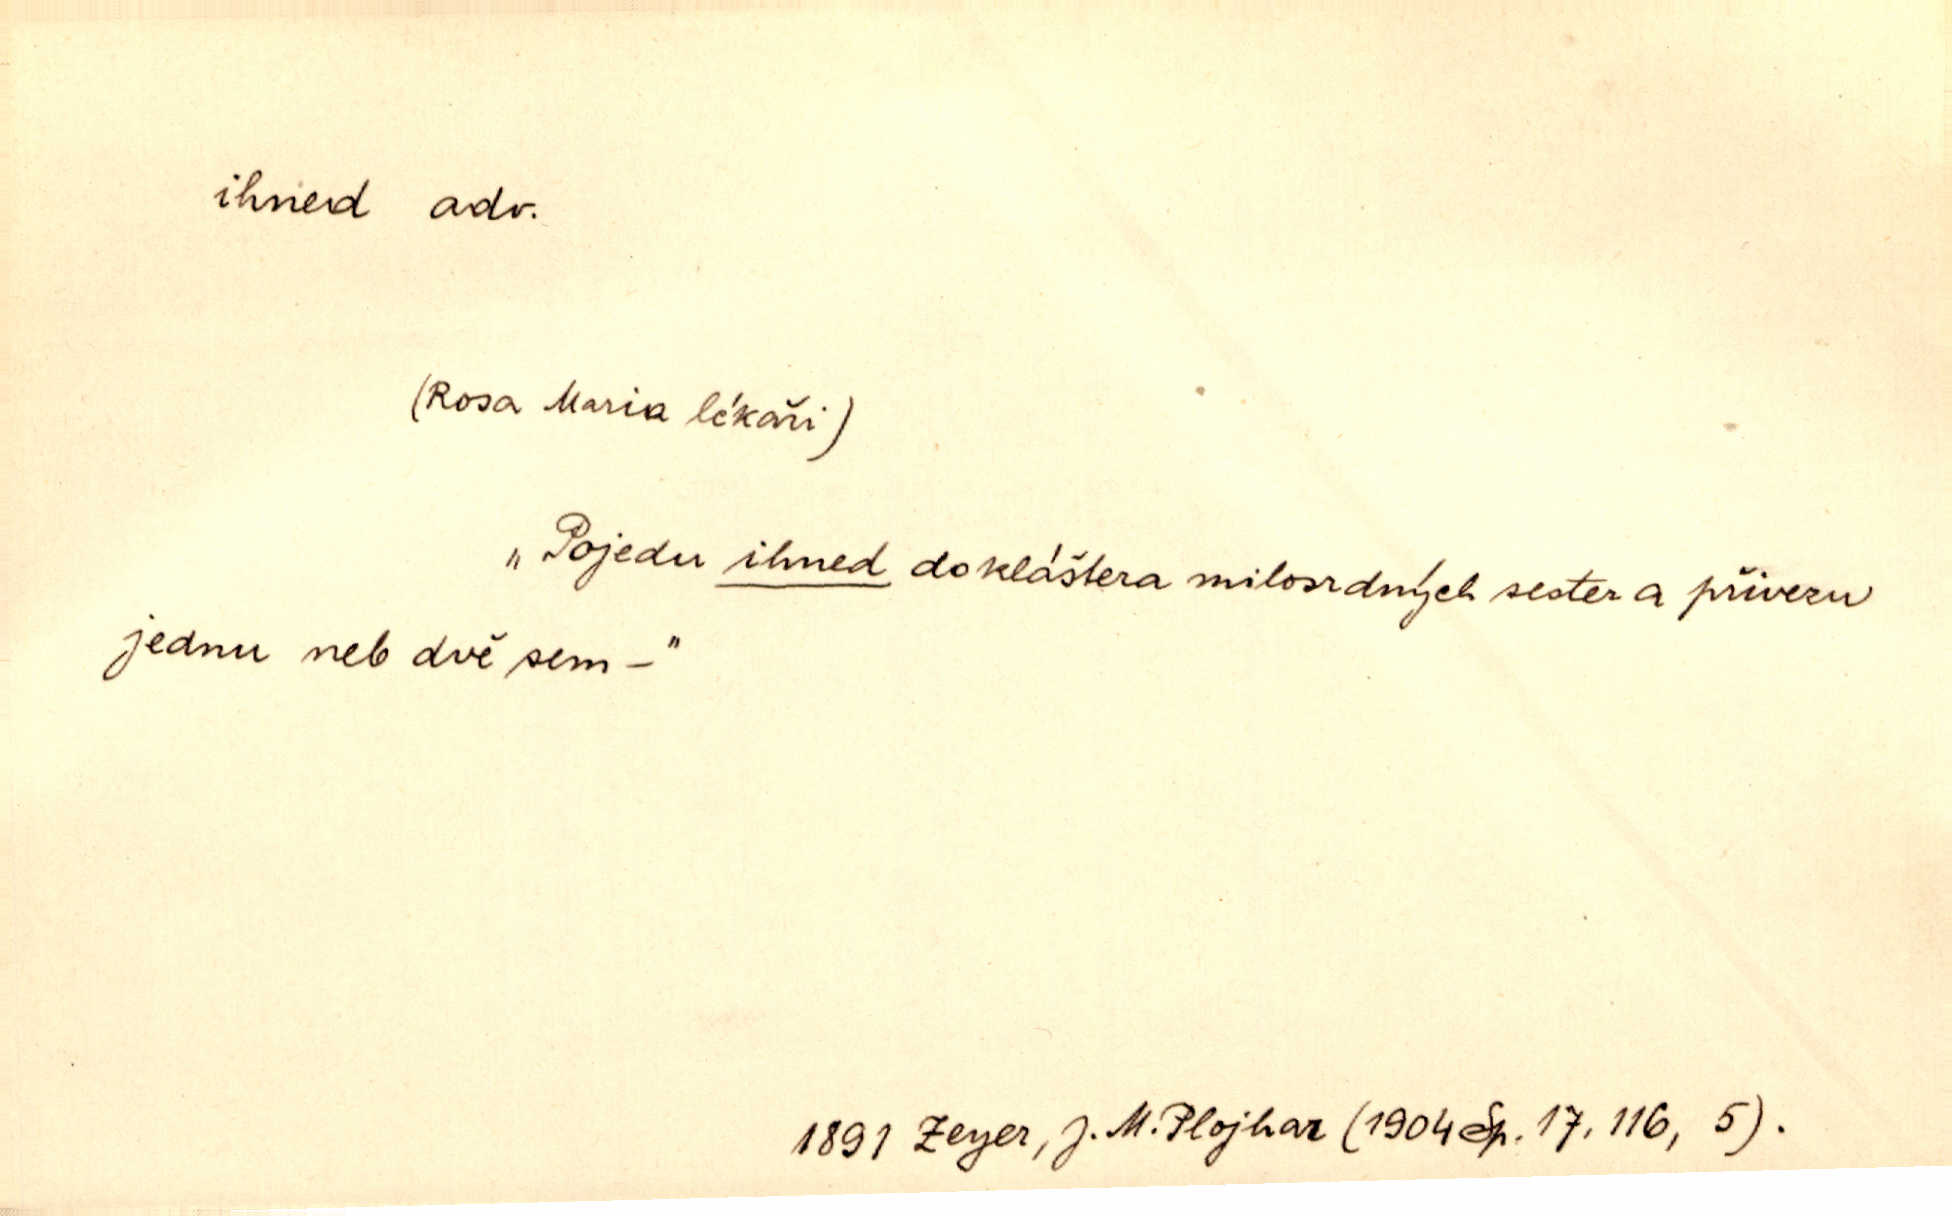 ihned adv.
(Rosa Maria lékaři)
„Pojedu ihned do kláštera milosrdných sester a přivezu
jednu neb dvě sem –"
1891 Zeyer, J. M. Plojhar (1904 Sp. 17, 116, 5).